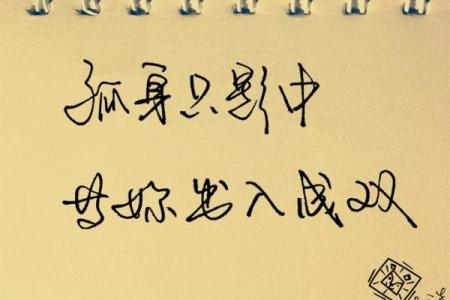 孤身只影中
与你出入成双